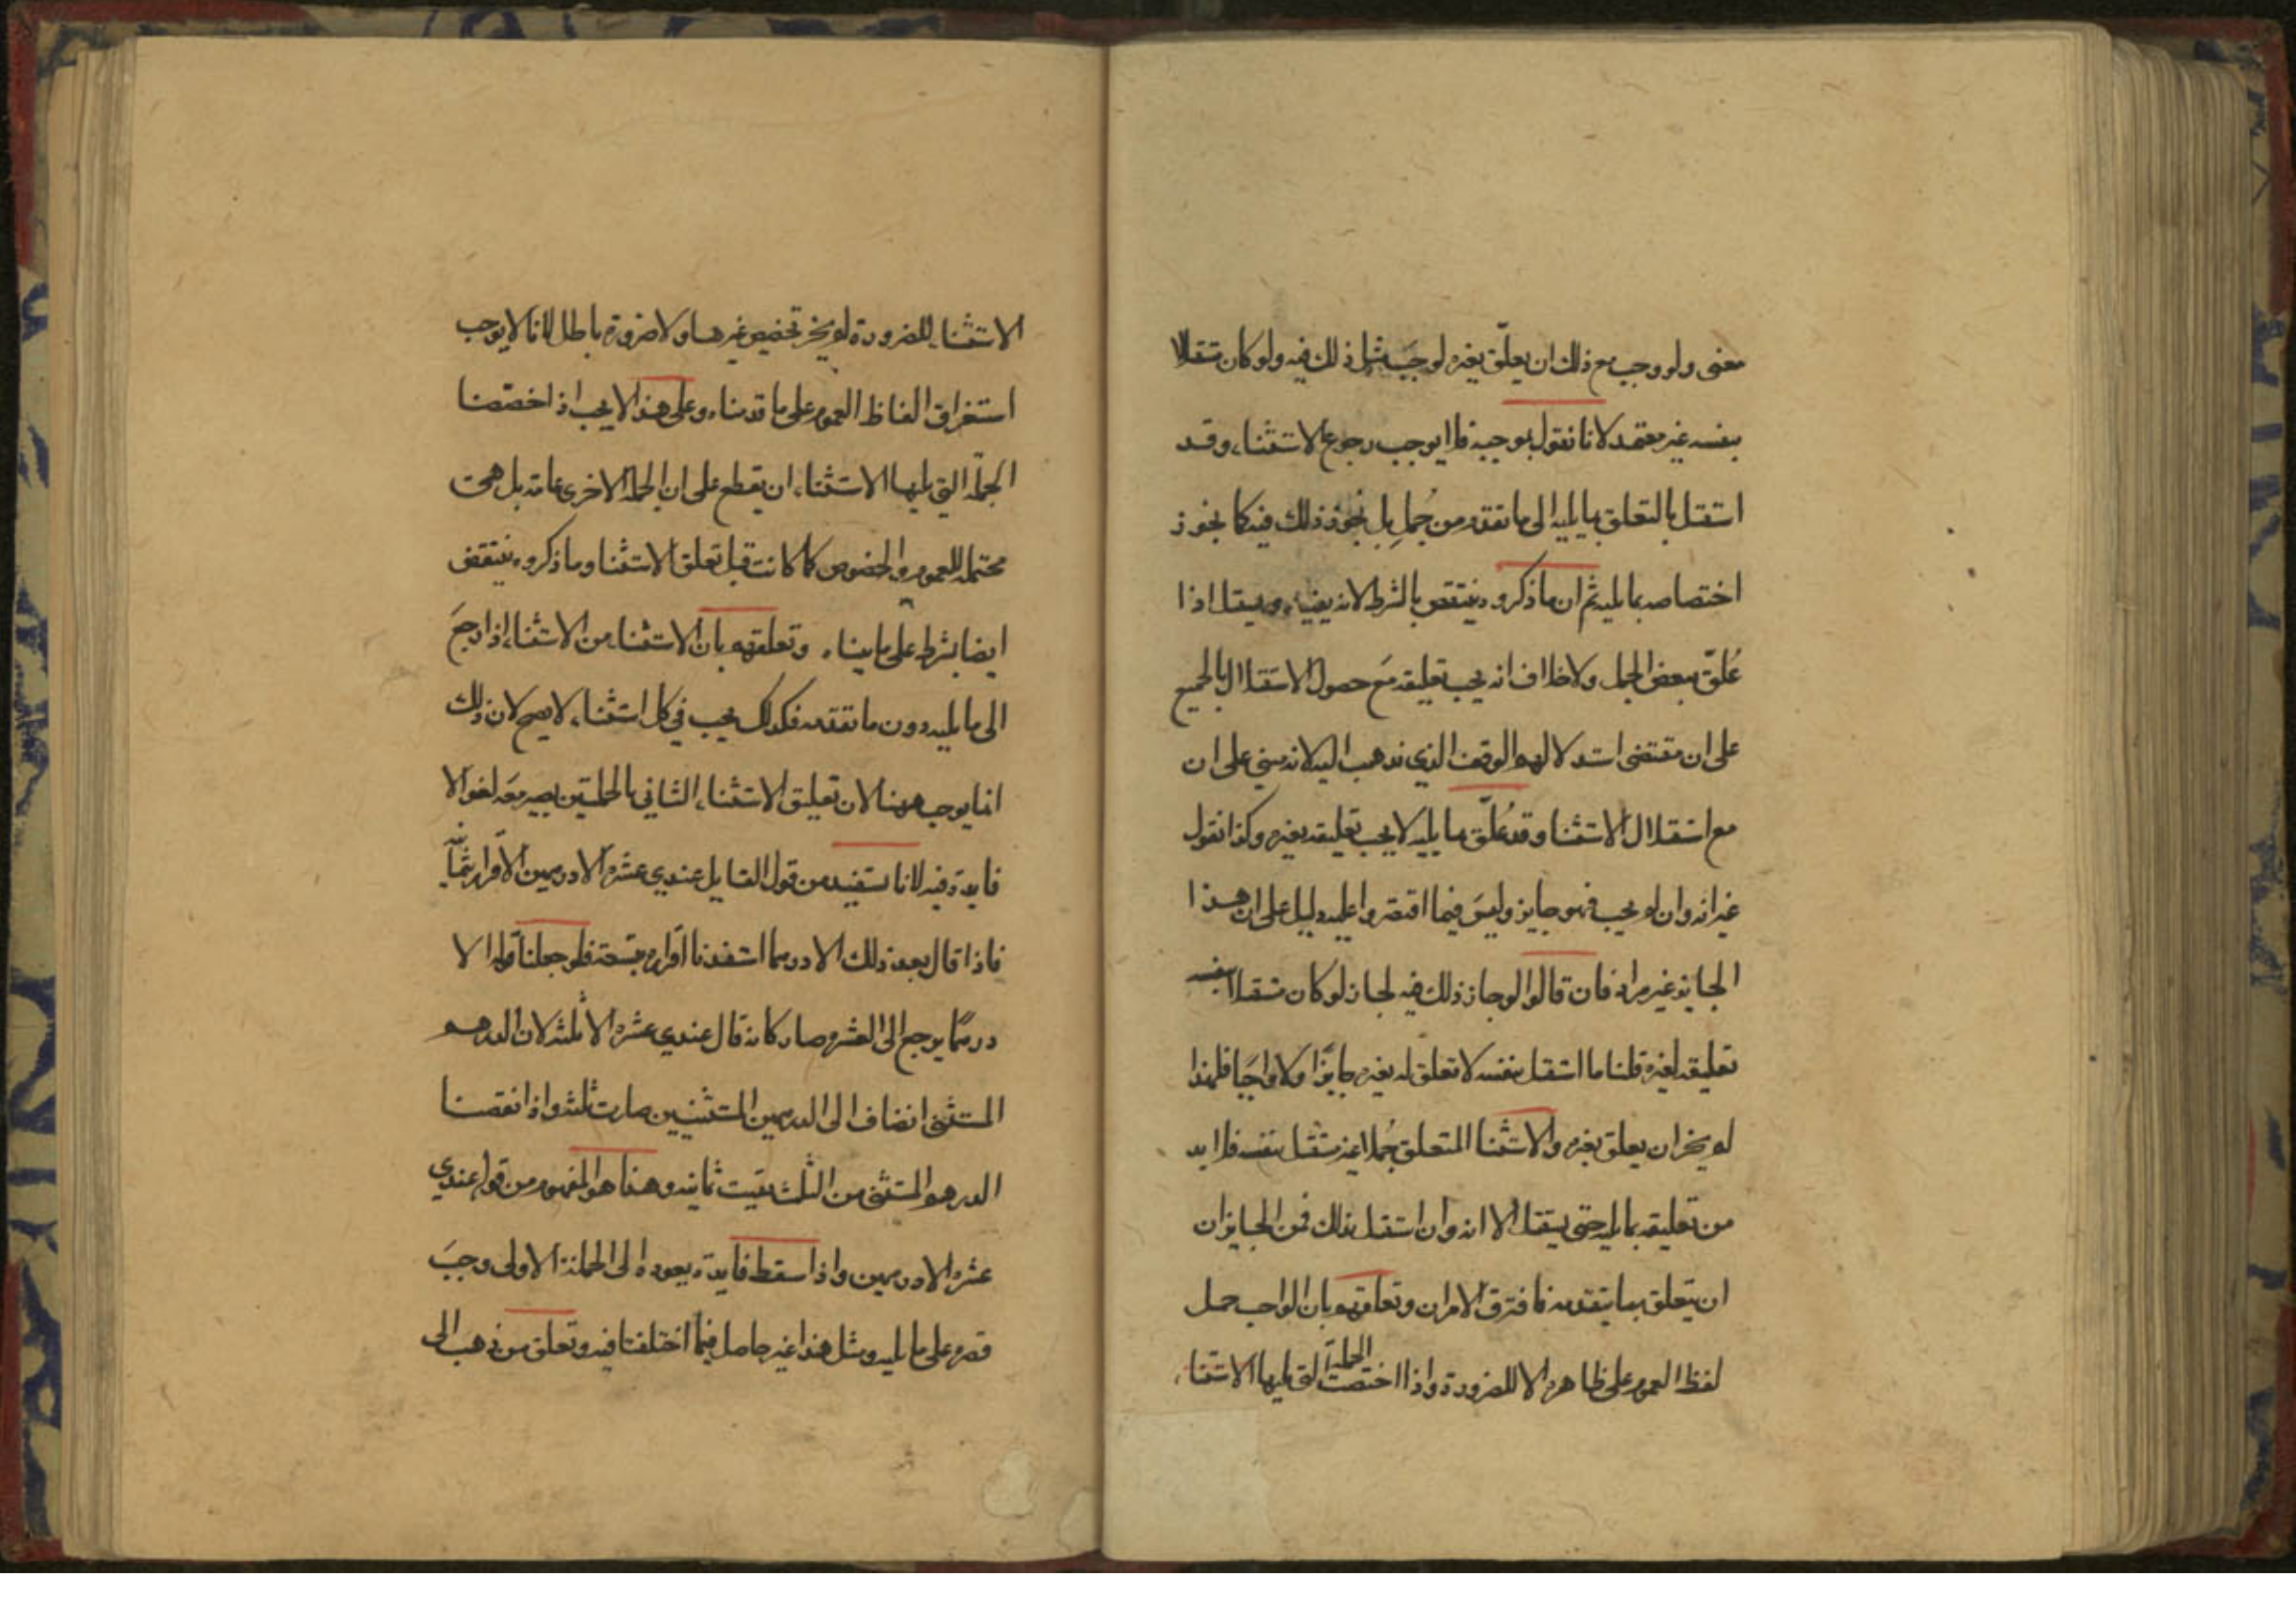 معنى ولو وجب مع ذلك ان يعلّق بغيره لوجَب مثل ذلك فيه ولو كان مستقلا
بنفسه غير معتمد لانا نقول بموجبه فلا يوجب رجوع الاستثناء وقد
استقل بالتعلق بما يليه الى ما تقدم من جُملٍ بل نجوّز ذلك فيه كما نجوز
اختصاصه بما يليه ثم ان ما ذكروه ينتقض بالشرط لانه يفيد ويستقل اذا
عُلّق ببعض الجمل ولا خلاف انه يجب تعليقه مع حصول الاستقلال بالجميع
على ان مقتضى استدلالهم الوقف الذي نذهب اليه لانه مبني على ان
مع استقلال الاستثنا وقد عُلّق بما يليه لا يجب تعليقه بغيره وكذا نقول
غير انه وان لم يجب فهو جايز وليس فيما اقتصروا عليه دليل على ان هذا
الجايز غير مراد فان قالوا لو جاز ذلك فيه لجاز لو كان مستقلا بنفسه
تعليقه بغيره قلنا ما استقل بنفسه لا تعلق له بغيره جايزًا ولا واجبًا فلهذا
لم يجز ان يعلق بغيره والاستثنا المتعلق جُملا غير مستقل بنفسه فلا بد
من تعليقه بما يليه حتى يستقل الا انه وان استقل بذلك فمن الجايز ان
ان يتعلق بما يتقدمه فافترق الامران وتعلقهم بان الواجب حمل
لفظ العموم على ظاهره الا للضرورة واذا اختصت الجملة التي يليها الاستثنا
الاستثناء للضرورة لم يجز تخصيص غيرها ولا ضرورة باطل لانا لا يوجب
استغراق الفاظ العموم على ما قدمناه وعلى هذا لا يجب اذ اخصّصنا
الجملة التي يليها الاستثناء ان يقطع على ان الجملة الاخرى عامة بل هي
محتملة للعموم والخصوص كما كانت قبل تعلق الاستثنا وما ذكروه ينتقض
ايضا بشرط على ما بيناه وتعلقهم بان الاستثنا من الاستثنا إذا رجَع
الى ما يليه دون ما تقدمه فكذلك يجب في كل استثناء لا يصح لان ذلك
انما يوجب ههنا لان تعليق الاستثناء الثاني بالجملتين يصير معَه لغوا لا
فايدة فيه لانا نستفيد من قول القايل عندي عشرة الا درهمين الاقرار بثمانية
فاذا قال بعد ذلك الا درهما استفدنا اقراره بتسعة فلو جعلنا قوله الا
درهمًا يرجع الى العشرة صار كانه قال عندي عشرة الا ثلثة لان الدرهم
المستثنى انضاف الى الدرهمين المستثنيين صارت ثلثة واذا نقصنا
الدرهم المستثنى من الثلث بقيت ثمانية وهذا هو المفهوم من قوله عندي
عشرة الا درهمين واذا سقط فايدة يعوده الى الجملة الاولى وجبَ
قصره على ما يليه ومثل هذا غير حاصل فيما اختلفنا فيه وتعلق من ذهب الى